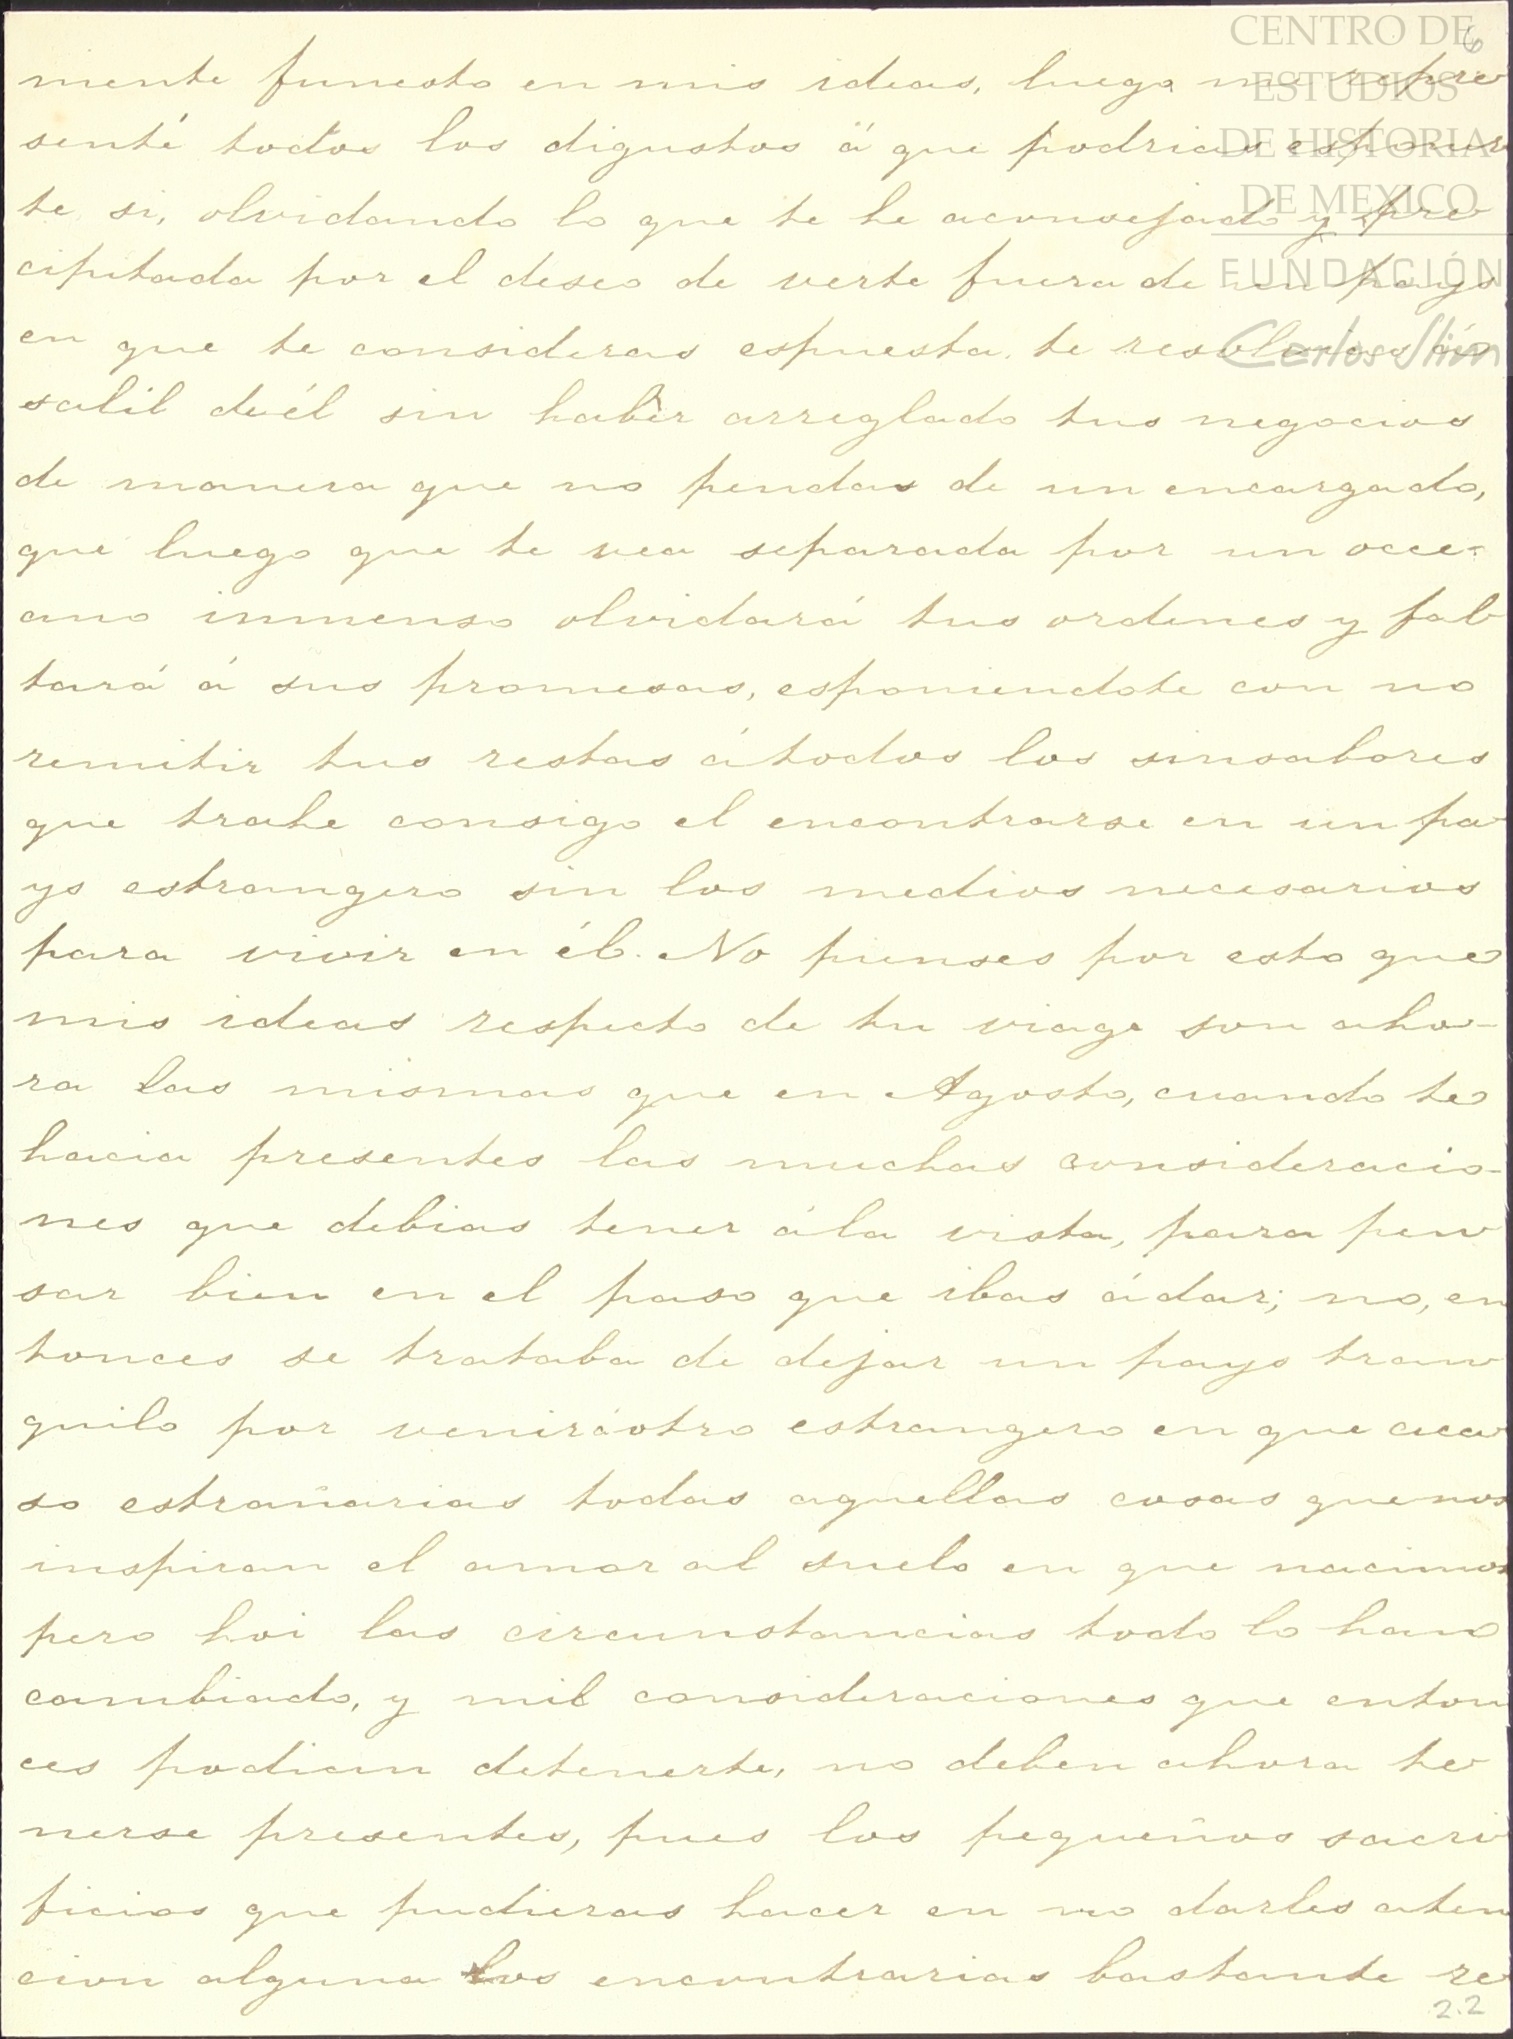 CENTRO DE
ESTUDIOS
DE HISTORIA
DE MEXICO
FUNDACIÓN
Carlos Slim
6
mente funesto en mis ideas, luego me repre
senté todos los digustos á que podrias esponer
te si, olvidando lo que te he aconsejado y pre
cipitada por el deseo de verte fuera de un pays
en que te consideras espuesta, te resolvieses á
salil de él sin haber arreglado tus negocios
de manera que no pendas de un encargado,
que luego que te vea separada por un occe-
ano inmenso olvidará tus ordenes y fal
tará á sus promesas, esponiendote con no
remitir tus restas á todos los sinsabores
que trahe consigo el encontrarse en un pa
ys estrangero sin los medios necesarios
para vivir en él. No pienses por esto que
mis ideas respecto de tu viage son aho-
ra las mismas que en Agosto, cuando te
hacia presentes las muchas consideracio-
nes que debias tener á la vista, para pen
sar bien en el paso que ibas á dar; no, en
tonces se trataba de dejar un pays tran
quilo por venir á otro estrangero en que aca
so estrañarias todas aquellas cosas que nos
inspiran el amor al suelo en que nacimos
pero hoi las circunstancias todo lo han
cambiado, y mil consideraciones que enton
ces podian detenerte, no deben ahora te
nerse presentes, pues los pequeños sacri
ficios que pudieras hacer en no darles aten
cion alguna los encontrarias bastante re
2.2